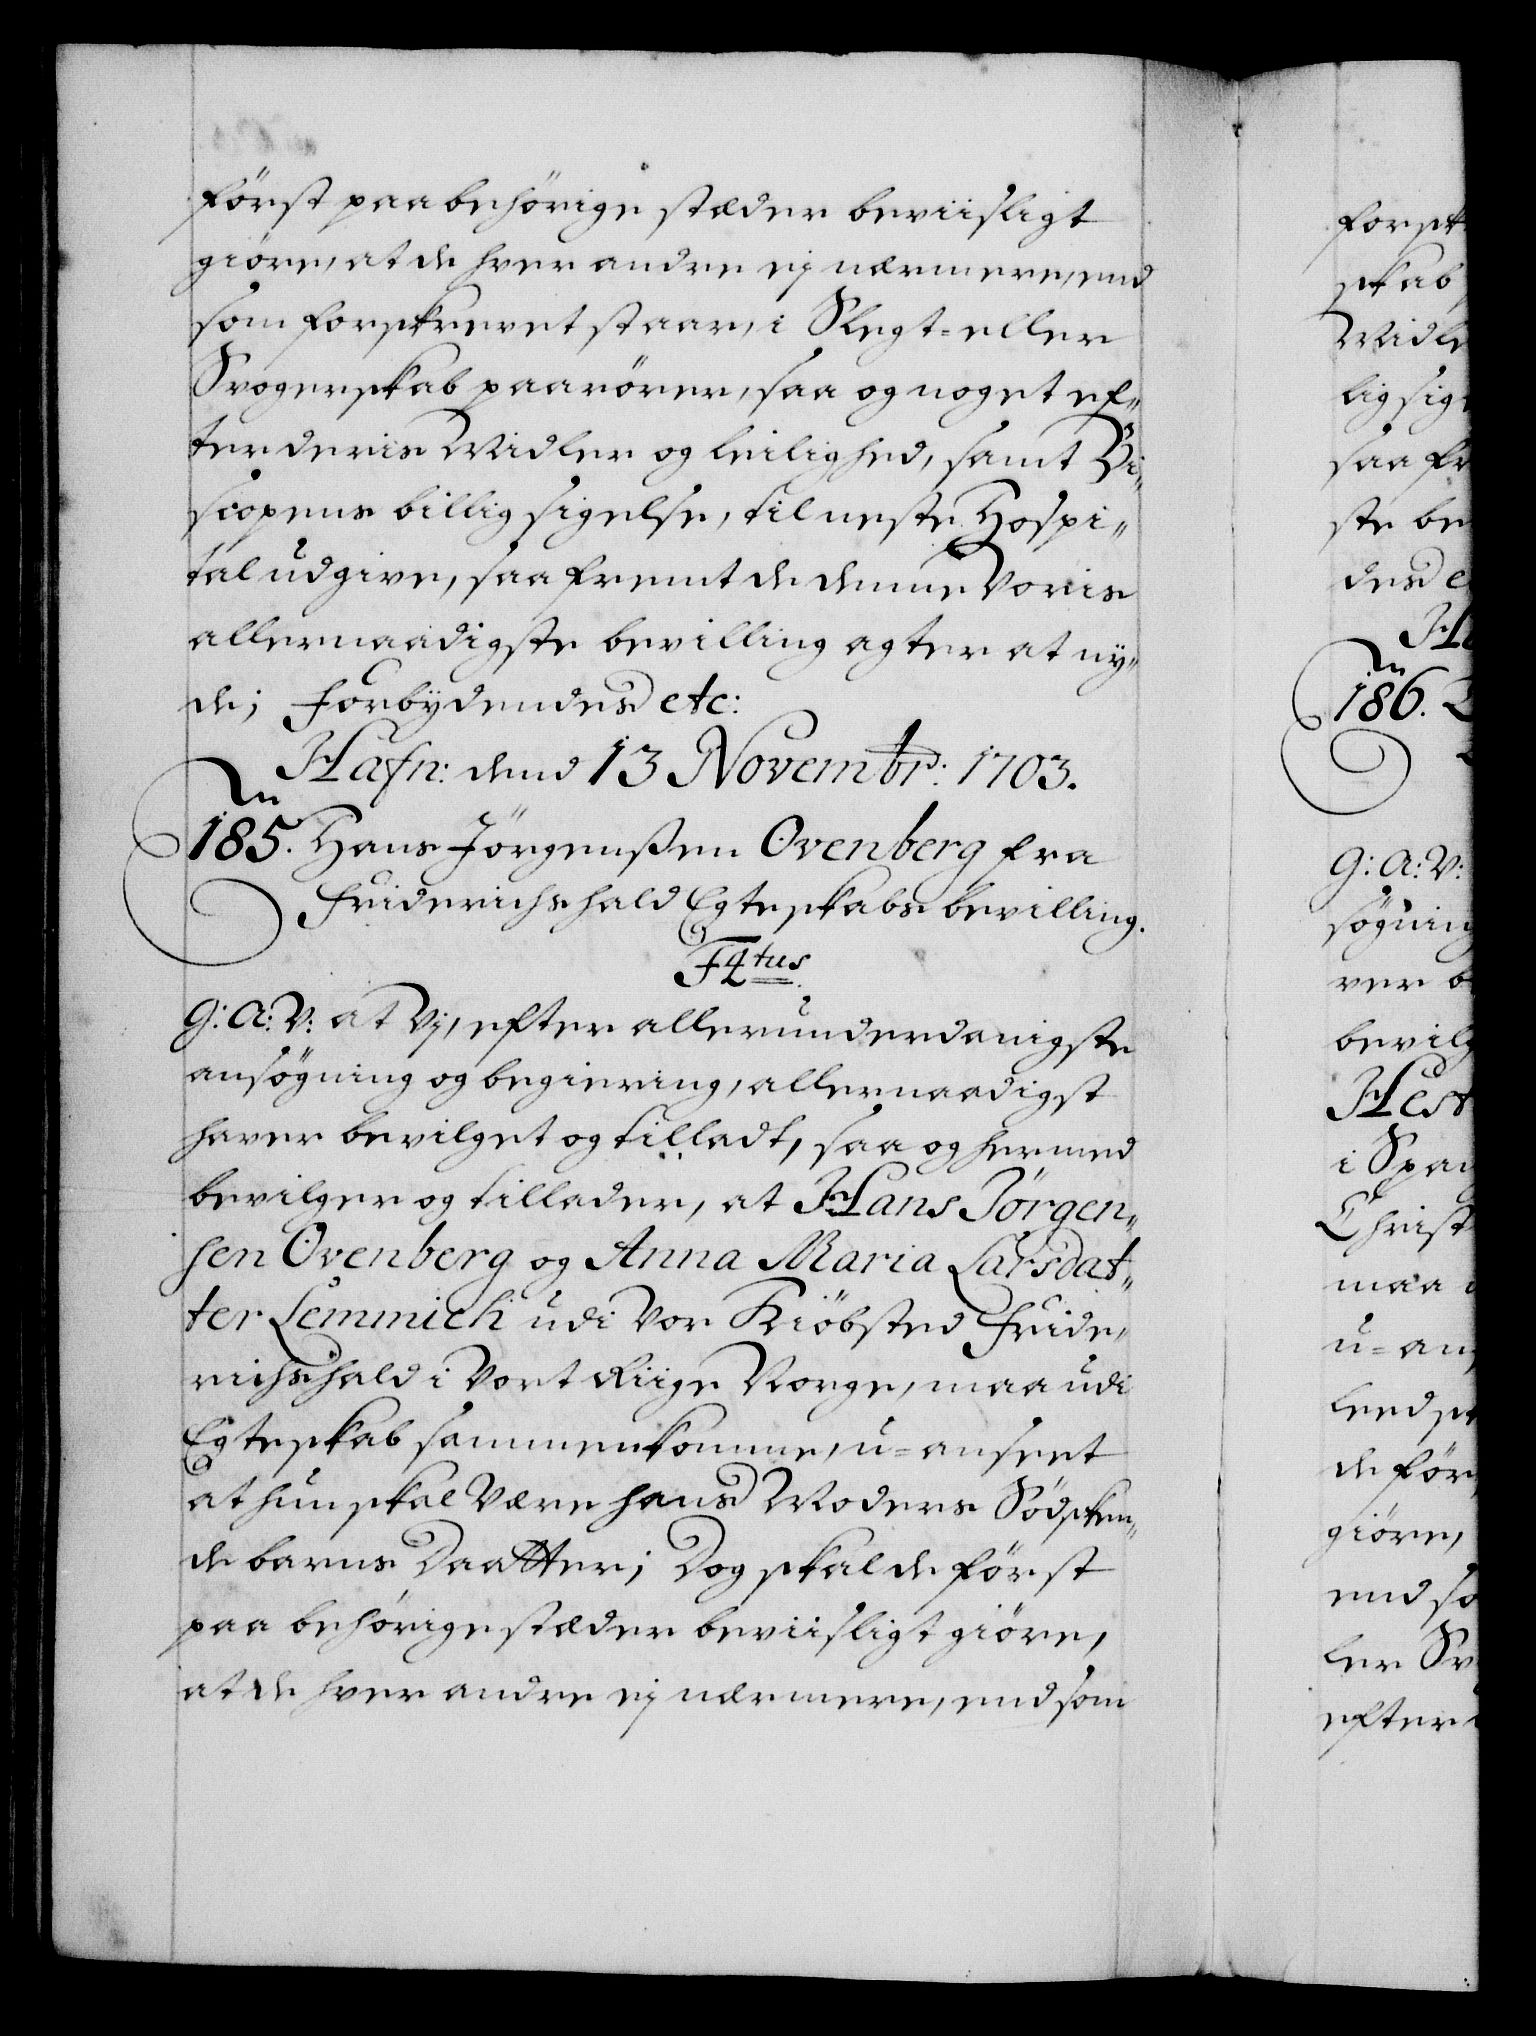 först paa behörige stæder beviisligt
giöre, at de hver andre ej nærmere, end
som forskrevet staar, i Slegt- eller
Svogerskab paarörer, saa og noget ef-
ter deris Midler og leilighed, samt Bi-
scopens billig sigelse, til neste Hospi-
tal udgive, saafremt de denne Voris
allernaadigste bevilling agter at ny-
de; Forbydendes etc:
Hafn: dend 13 Novembr: 1703.
185. Hans Jörgenßen Ovenberg fra
Friderichshald Egteskabs bevilling.
F4tus
G: A: V: at Vj, efter allerunderdanigste
ansögning og begiering, allernaadigst
haver bevilget og tilladt, saa og hermed
bevilger og tillader, at Hans Jörgen-
sen Ovenberg og Anna Maria Larsdat-
ter Lemmich udi Vor Kiöbsted Fride-
richshald i Vort Riige Norge, maa udi
Egteskab sammenkomme, u-anseet
at hun skal Være hans Moders Södsken-
de barns Daatter; Dog skal de först
paa behörige stæder beviisligt giöre,
at de hver andre ej nærmere, end som
forsk
skab
Midle
lig sige
saa fr
ste be
des e
186.
G: A: V:
sögning
ver b
bevilg
Hest
i Span
Christ
maa
u-an
leedsk
de för
giöre,
end so
ler Sv
efter